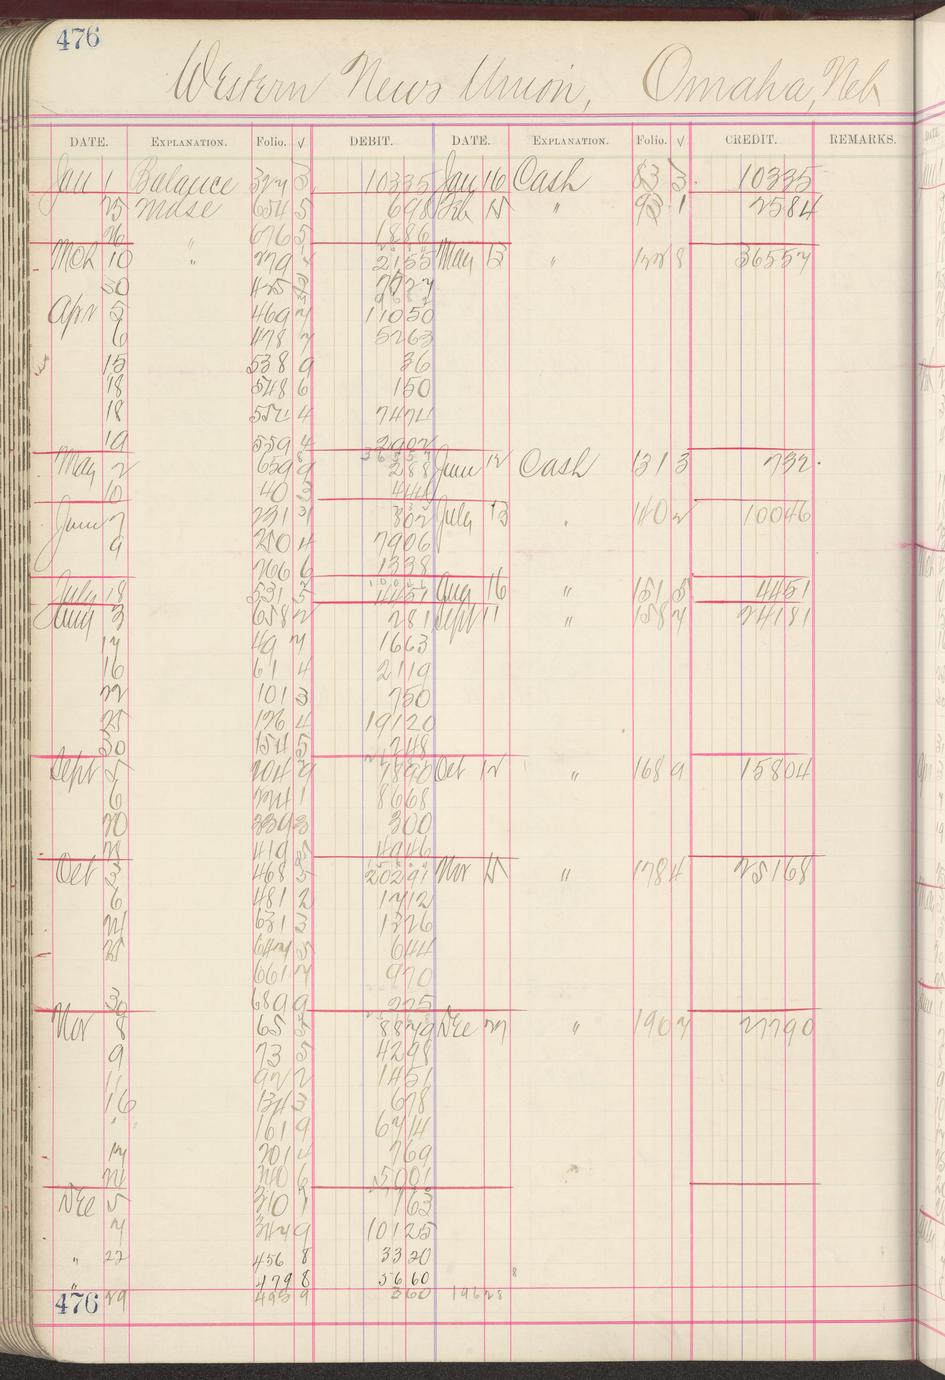 476
Western News Union, Omaha, Neb
DATE. EXPLANATION. Folio. √ DEBIT. DATE. EXPLANATION. Folio. √ CREDIT. REMARKS.
Jan 1 Balance 10335 Jan 16 Cash 83 3 10335
25 Mdse 654 5 698 Feb 15 " 93 1 2584
26 " 676 5 1886
Mch 10 " 279 2155 May 13 " 122 8 36557
30 425
Apr 5 469 7 11050
6 478 7 5263
15 538 9 36
18 548 6 150
18 552 4 7474
19 559 4 2902
36557
May 2 659 9 288 June 12 Cash 131 3 732
10 40 3 444
June 7 231 3 802 July 13 " 140 2 10046
9 250 4 7906
266 6 1338
July 18 531 5 4451 Aug 16 " 151 5 4451
Aug 3 658 2 281 Sept 11 " 158 7 24181
14 49 7 1663
16 61 4 2119
22 101 3 750
25 126 4 19120
30 154 5 248
Sept 2 204 9 7890 Oct 12 " 168 9 15804
6 224 1 8668
20 339 3 300
419 4946
Oct 3 468 5 20291 Nov 15 " 178 4 25168
6 481 2 1712
24 631 3 1326
25 647 5 644
661 7 970
30 689 9 225
Nov 8 65 5 8879 Dec 27 " 190 7 27790
9 73 5 4298
11 92 2 1451
16 134 3 678
" 161 9 6714
17 201 4 769
24 240 6 5001
Dec 5 310 7 763
7 347 9 10125
" 22 456 8 3320
" 479 8 5660
476 29 495 9 360 19628